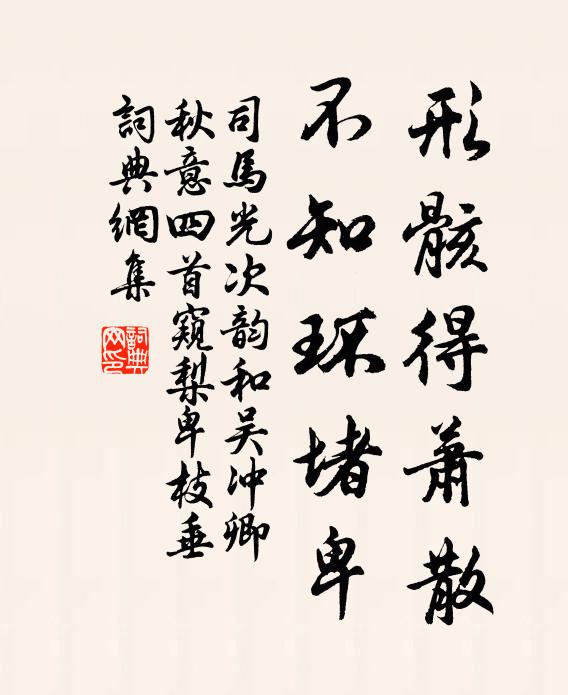 形骸得蕭散
不知環堵卑
司馬光次韵和吴冲卿
秋意四首窺梨卑枝垂
詞典網集
詞典网印